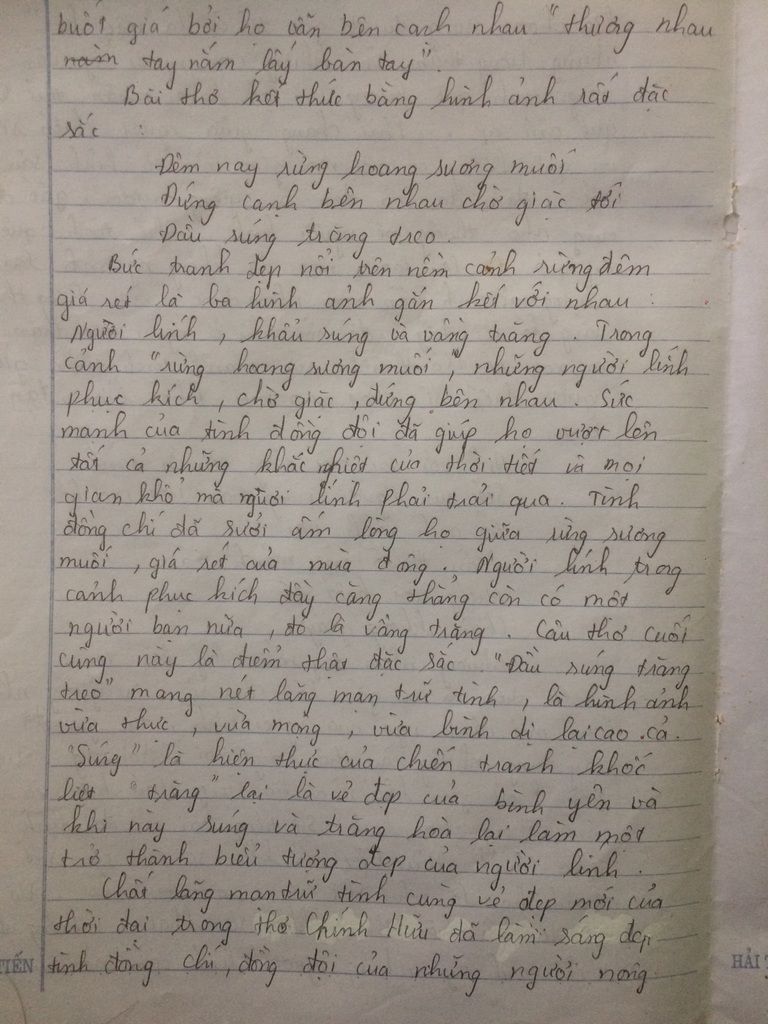 buốt giá bởi họ vẫn bên cạnh nhau "thương nhau
nằm tay nắm lấy bàn tay".
Bài thơ kết thúc bằng hình ảnh rất đặc
sắc :
Đêm nay rừng hoang sương muối
Đứng cạnh bên nhau chờ giặc tới
Đầu súng trăng treo.
Bức tranh đẹp nổi trên nềm cảnh rừng đêm
giá rét là ba hình ảnh gắn kết với nhau :
Người lính, khẩu súng và vầng trăng. Trong
cảnh "rừng hoang sương muối", những người lính
phục kích, chờ giặc, đứng bên nhau. Sức
mạnh của tình đồng đội đã giúp họ vượt lên
tất cả những khắc nhiệt của thời tiết và mọi
gian khổ mà người lính phải trải qua. Tình
đồng chí đã sưởi ấm lòng họ giữa rừng sương
muối, giá rét của mùa đông. Người lính trong
cảnh phục kích đầy căng thẳng còn có một
người bạn nữa, đó là vầng trăng. Câu thơ cuối
cùng này là điểm thật đặc sắc. "Đầu súng trăng
treo" mang nét lãng mạn trữ tình, là hình ảnh
vừa thực, vừa mộng, vừa bình dị lại cao cả.
"Súng" là hiện thực của chiến tranh khốc
liệt "trăng" lại là vẻ đẹp của bình yên và
khi này súng và trăng hoà lại làm một
trở thành biểu tượng đẹp của người lính.
Chất lãng mạn trữ tình cùng vẻ đẹp mới của
thời đại trong thơ Chính Hữu đã làm sáng đẹp
tình đồng chí, đồng đội của những người nông
TIẾN
HẢI